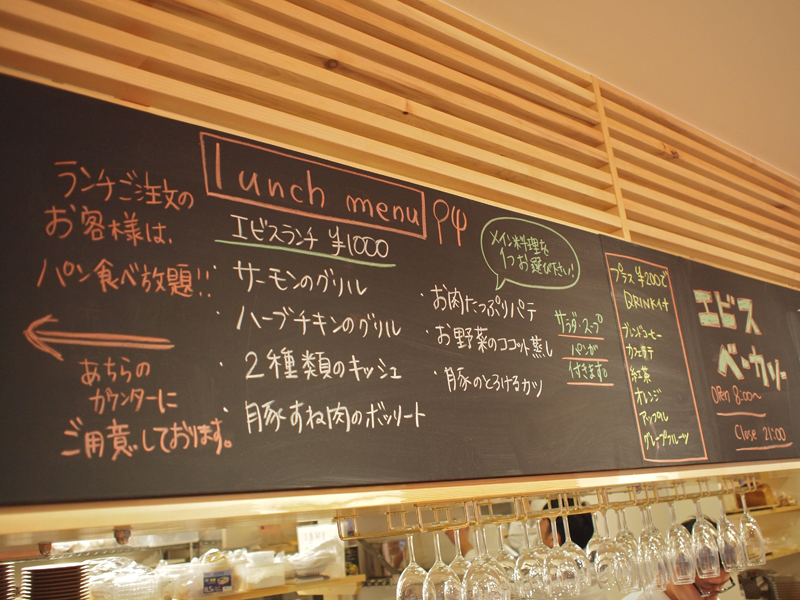 ランチご注文の
お客様は、
パン食べ放題!!
あちらの
カウンターに
ご用意しております。
lunch menu
エビスランチ ¥1000
・サーモンのグリル
・ハーブチキンのグリル
・2種類のキッシュ
・豚すね肉のボッリート
・お肉たっぷりパテ
・お野菜のココット蒸し
・豚のとろけるカツ
メイン料理を
1つお選び下さい!
サラダ・スープ
パンが
付きます。
プラス ¥200で
DRINK付
ブレンドコーヒー
カフェオレ
紅茶
オレンジ
アップル
グレープフルーツ
エビス
ベーカリー
Open 8:00〜
Close 21:00